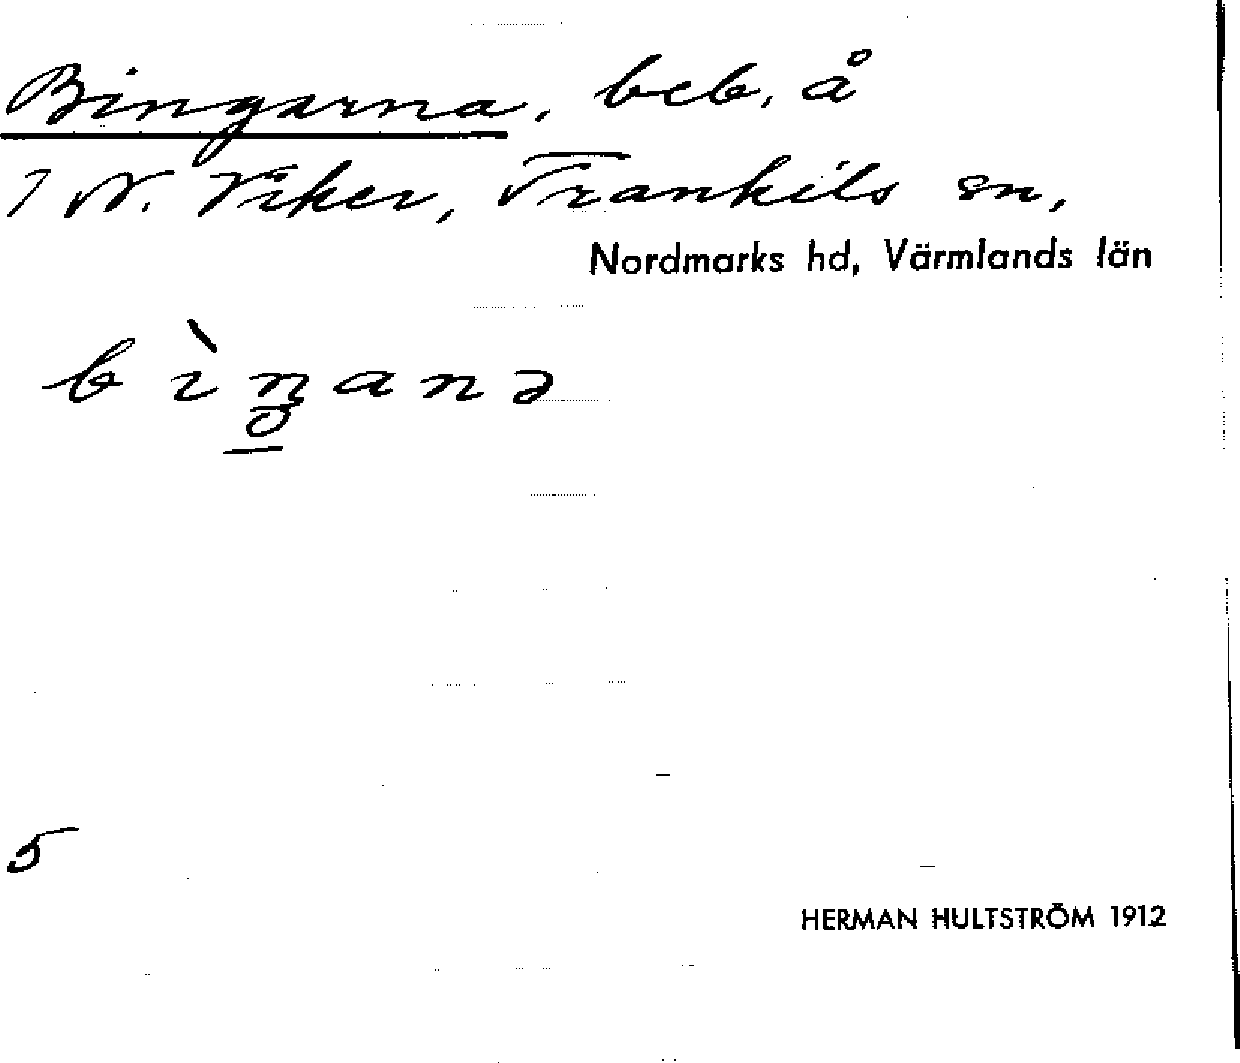 Bingarna, beb. å
1 N. Viker, Trankils sn,
Nordmarks hd, Värmlands län
5
HERMAN HULTSTRÖM 1912